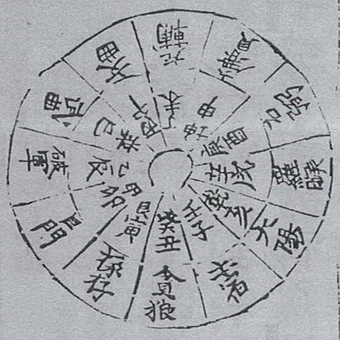 貪狼
癸丑
祿存
艮寅
巨門
甲卯
破軍
乙辰
武曲
巽巳
文曲
丙午
左輔
丁未
坤申
右弼
庚酉
羅睺
辛戌
太陽
乾亥
壬子